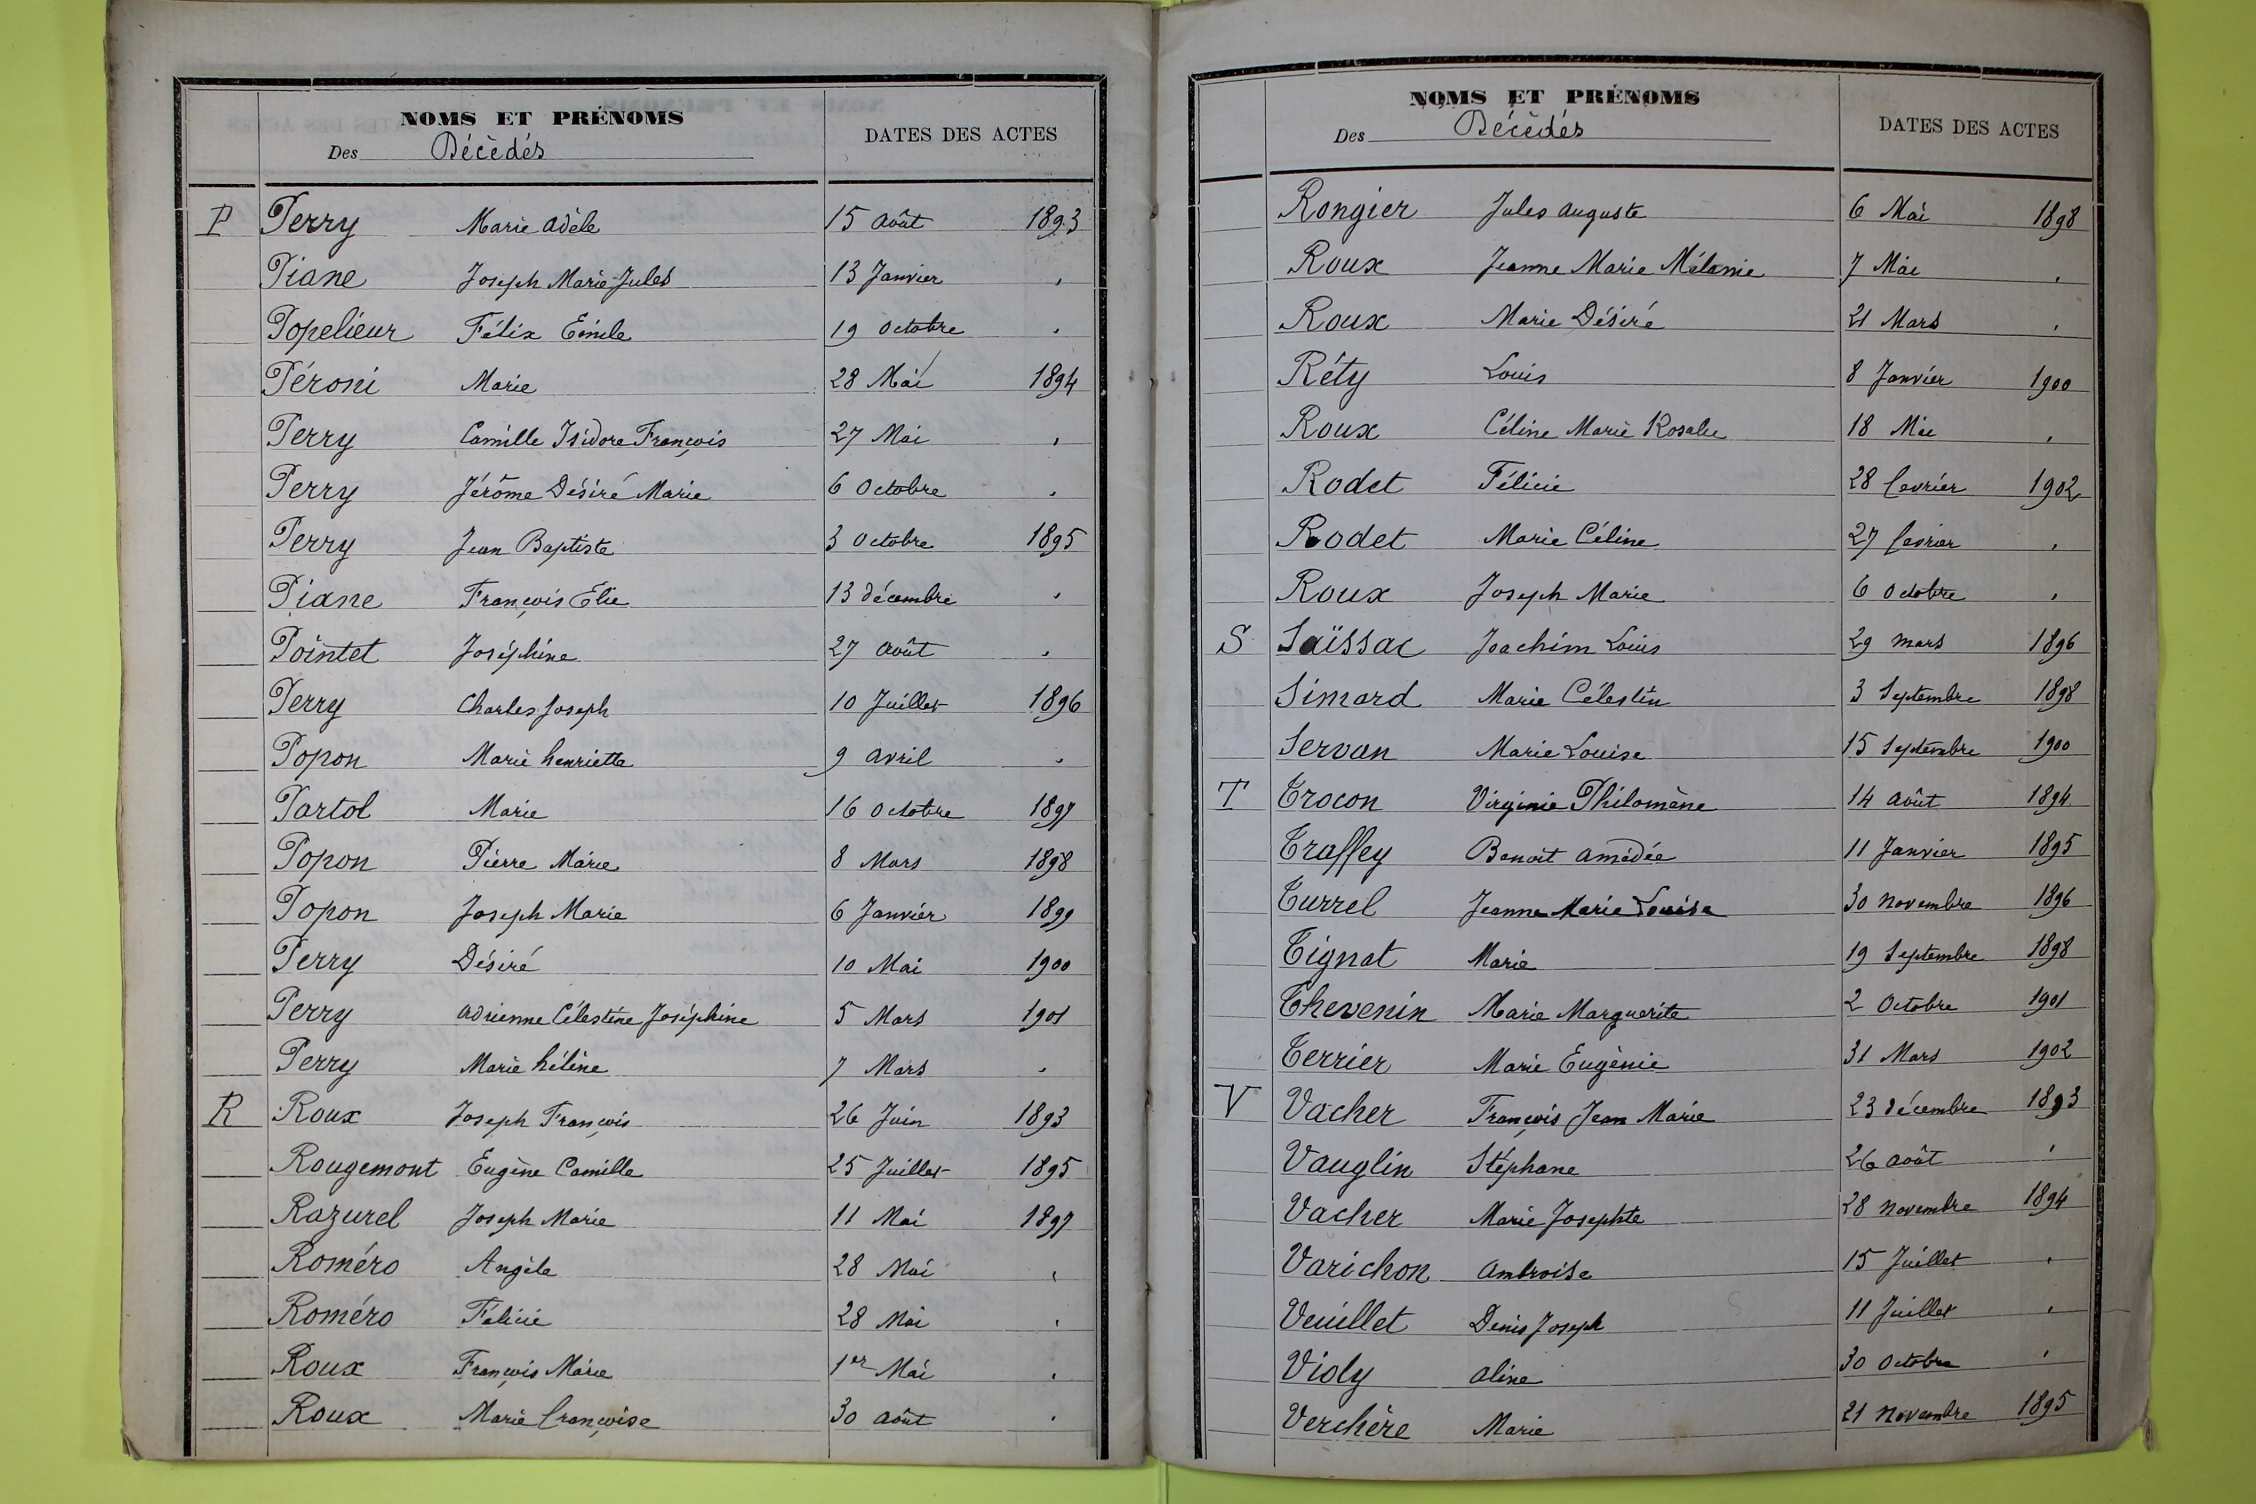 NOMS ET PRÉNOMS
Des Décèdés
DATES DES ACTES
P Perry Marie Adèle 15 août 1893
Piane Joseph Marie Jules 13 Janvier "
Popelieur Félix Emile 19 octobre "
Péroni Marie 28 Mai 1894
Perry Camille Isidore François 27 Mai "
Perry Jérôme Désiré Marie 6 Octobre "
Perry Jean Baptiste 3 Octobre 1895
Piane François Élie 13 décembre "
Pointet Joséphine 27 août "
Perry Charles Joseph 10 Juillet 1896
Popon Marie henriette 9 avril "
Partol Marie 16 Octobre 1897
Popon Pierre Marie 8 Mars 1898
Popon Joseph Marie 6 Janvier 1899
Perry Désiré 10 Mai 1900
Perry adrienne Célestine Joséphine 5 Mars 1901
Perry Marie hélène 7 Mars "
R Roux Joseph François 26 Juin 1893
Rougemont Eugène Camille 25 Juillet 1895
Razurel Joseph Marie 11 Mai 1897
Roméro Angèle 28 Mai "
Roméro Félicie 28 Mai "
Roux François Marie 1er Mai "
Roux Marie françoise 30 août "
NOMS ET PRÉNOMS
Des Décèdés
DATES DES ACTES
Rongier Jules auguste 6 Mai 1898
Roux Jeanne Marie Mélanie 7 Mai "
Roux Marie Désiré 21 Mars "
Réty Louis 8 Janvier 1900
Roux Céline Marie Rosalie 18 Mai "
Rodet Félicie 28 fevrier 1902
Rodet Marie Céline 27 fevrier "
Roux Joseph Marie 6 Octobre "
S Saïssac Joachim Louis 29 mars 1896
Simard Marie Célestin 3 Septembre 1898
Servan Marie Louise 15 Septembre 1900
T Trocon Virginie Philomène 14 août 1894
Traffey Benoit amédée 11 Janvier 1895
Turrel Jeanne Marie Louise 30 novembre 1896
Tignat Marie 19 Septembre 1898
Thevenin Marie Marguerite 2 Octobre 1901
Terrier Marie Eugènie 31 Mars 1902
V Vacher François Jean Marie 23 décembre 1893
Vauglin Stéphane 26 août "
Vacher Marie Josephte 28 novembre 1894
Varichon ambroise 15 Juillet "
Veuillet Denis Joseph 11 Juillet "
Violy aline 30 Octobre "
Verchère Marie 21 novembre 1895